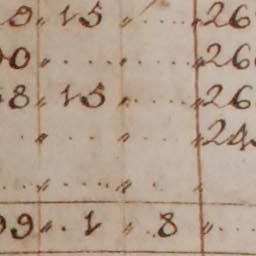 0 " 15 " .... " 26
00 " .... " .... " 26
8 " 15 " .... " 26
" .... " .... " 24
" .... " .... "
99 " . 1 " . 8 " ....